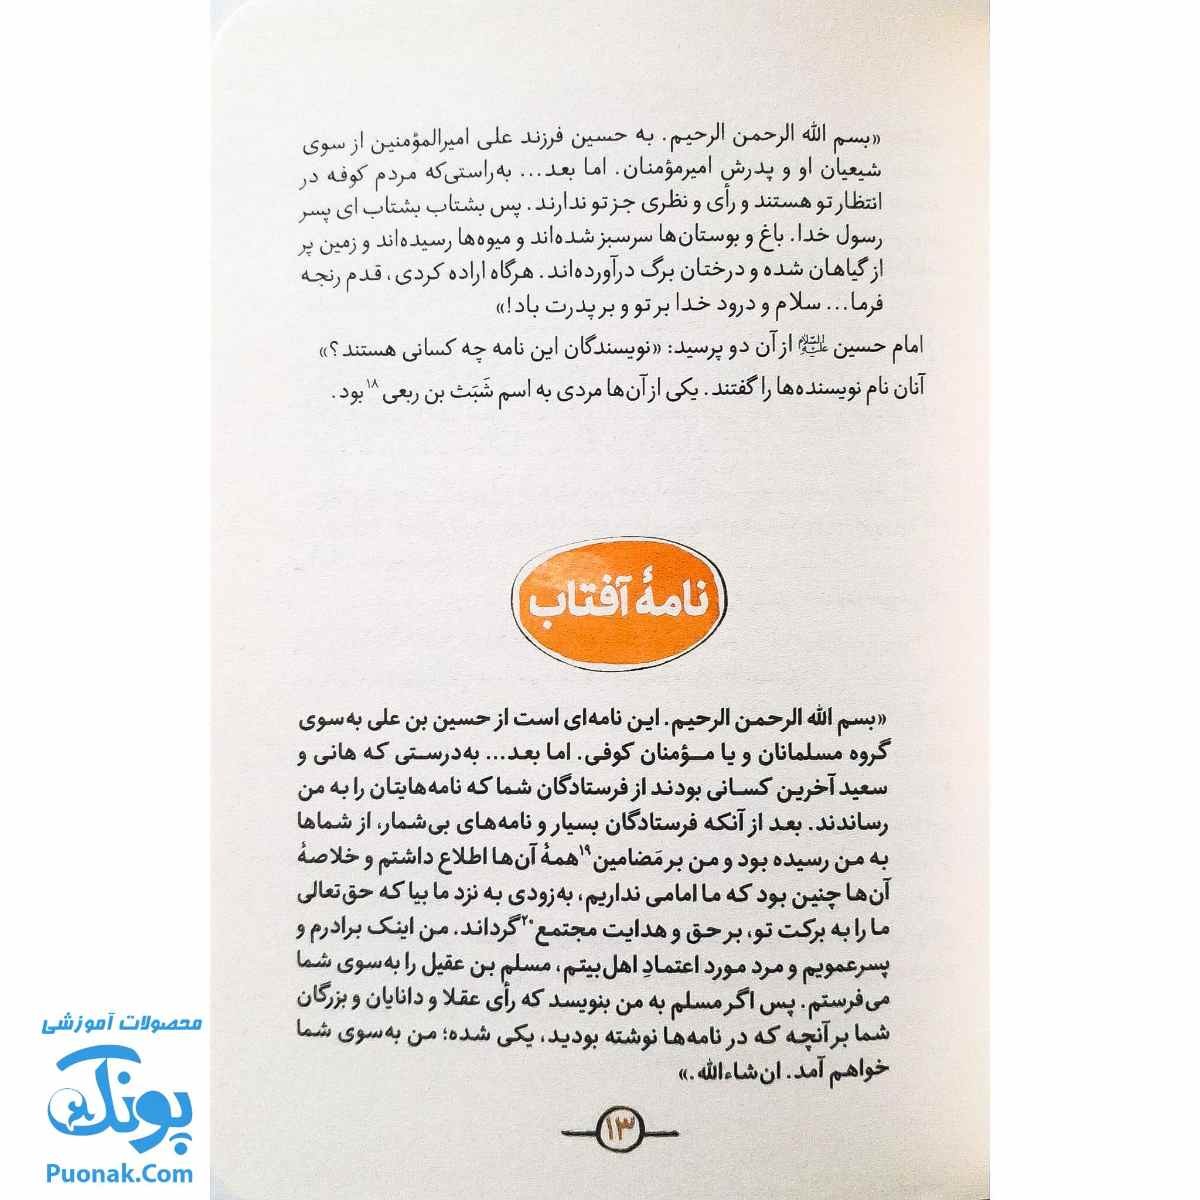 «بسم الله الرحمن الرحیم. به حسین فرزند علی امیرالمؤمنین از سوی
شیعیان او و پدرش امیرمؤمنان. اما بعد... به‌راستی‌که مردم کوفه در
انتظار تو هستند و رأی و نظری جز تو ندارند. پس بشتاب بشتاب ای پسر
رسول خدا. باغ و بوستان‌ها سرسبز شده‌اند و میوه‌ها رسیده‌اند و زمین پر
از گیاهان شده و درختان برگ درآورده‌اند. هرگاه اراده کردی، قدم رنجه
فرما... سلام و درود خدا بر تو و بر پدرت باد!»
امام حسین علیه‌السلام از آن دو پرسید: «نویسندگان این نامه چه کسانی هستند؟»
آنان نام نویسنده‌ها را گفتند. یکی از آن‌ها مردی به اسم شَبَث بن ربعی۱۸ بود.
نامهٔ آفتاب
«بسم الله الرحمن الرحیم. این نامه‌ای است از حسین بن علی به‌سوی
گروه مسلمانان و یا مـؤمنان کوفی. اما بعد... به‌درستی که هانی و
سعید آخرین کسـانی بودند از فرستادگان شما که نامه‌هایتان را به من
رساندند. بعد از آنکه فرستادگان بسیار و نامه‌های بی‌شمار، از شماها
به من رسیده بود و من بر مَضامین۱۹ همهٔ آن‌ها اطلاع داشتم و خلاصهٔ
آن‌ها چنین بود که ما امامی نداریم، به‌زودی به نزد ما بیا که حق‌تعالی
ما را به برکت تو، بر حق و هدایت مجتمع۲۰ گرداند. من اینک برادرم و
پسرعمویم و مرد مورد اعتمادِ اهل‌بیتم، مسلم بن عقیل را به‌سوی شما
می‌فرستم. پس اگر مسلم به من بنویسد که رأی عقلا و دانایان و بزرگان
شما بر آنچه که در نامه‌ها نوشته بودید، یکی شده؛ من به‌سوی شما
خواهم آمد. ان‌شاءالله.»
۱۳
محصولات آموزشی
پونک
Puonak.Com